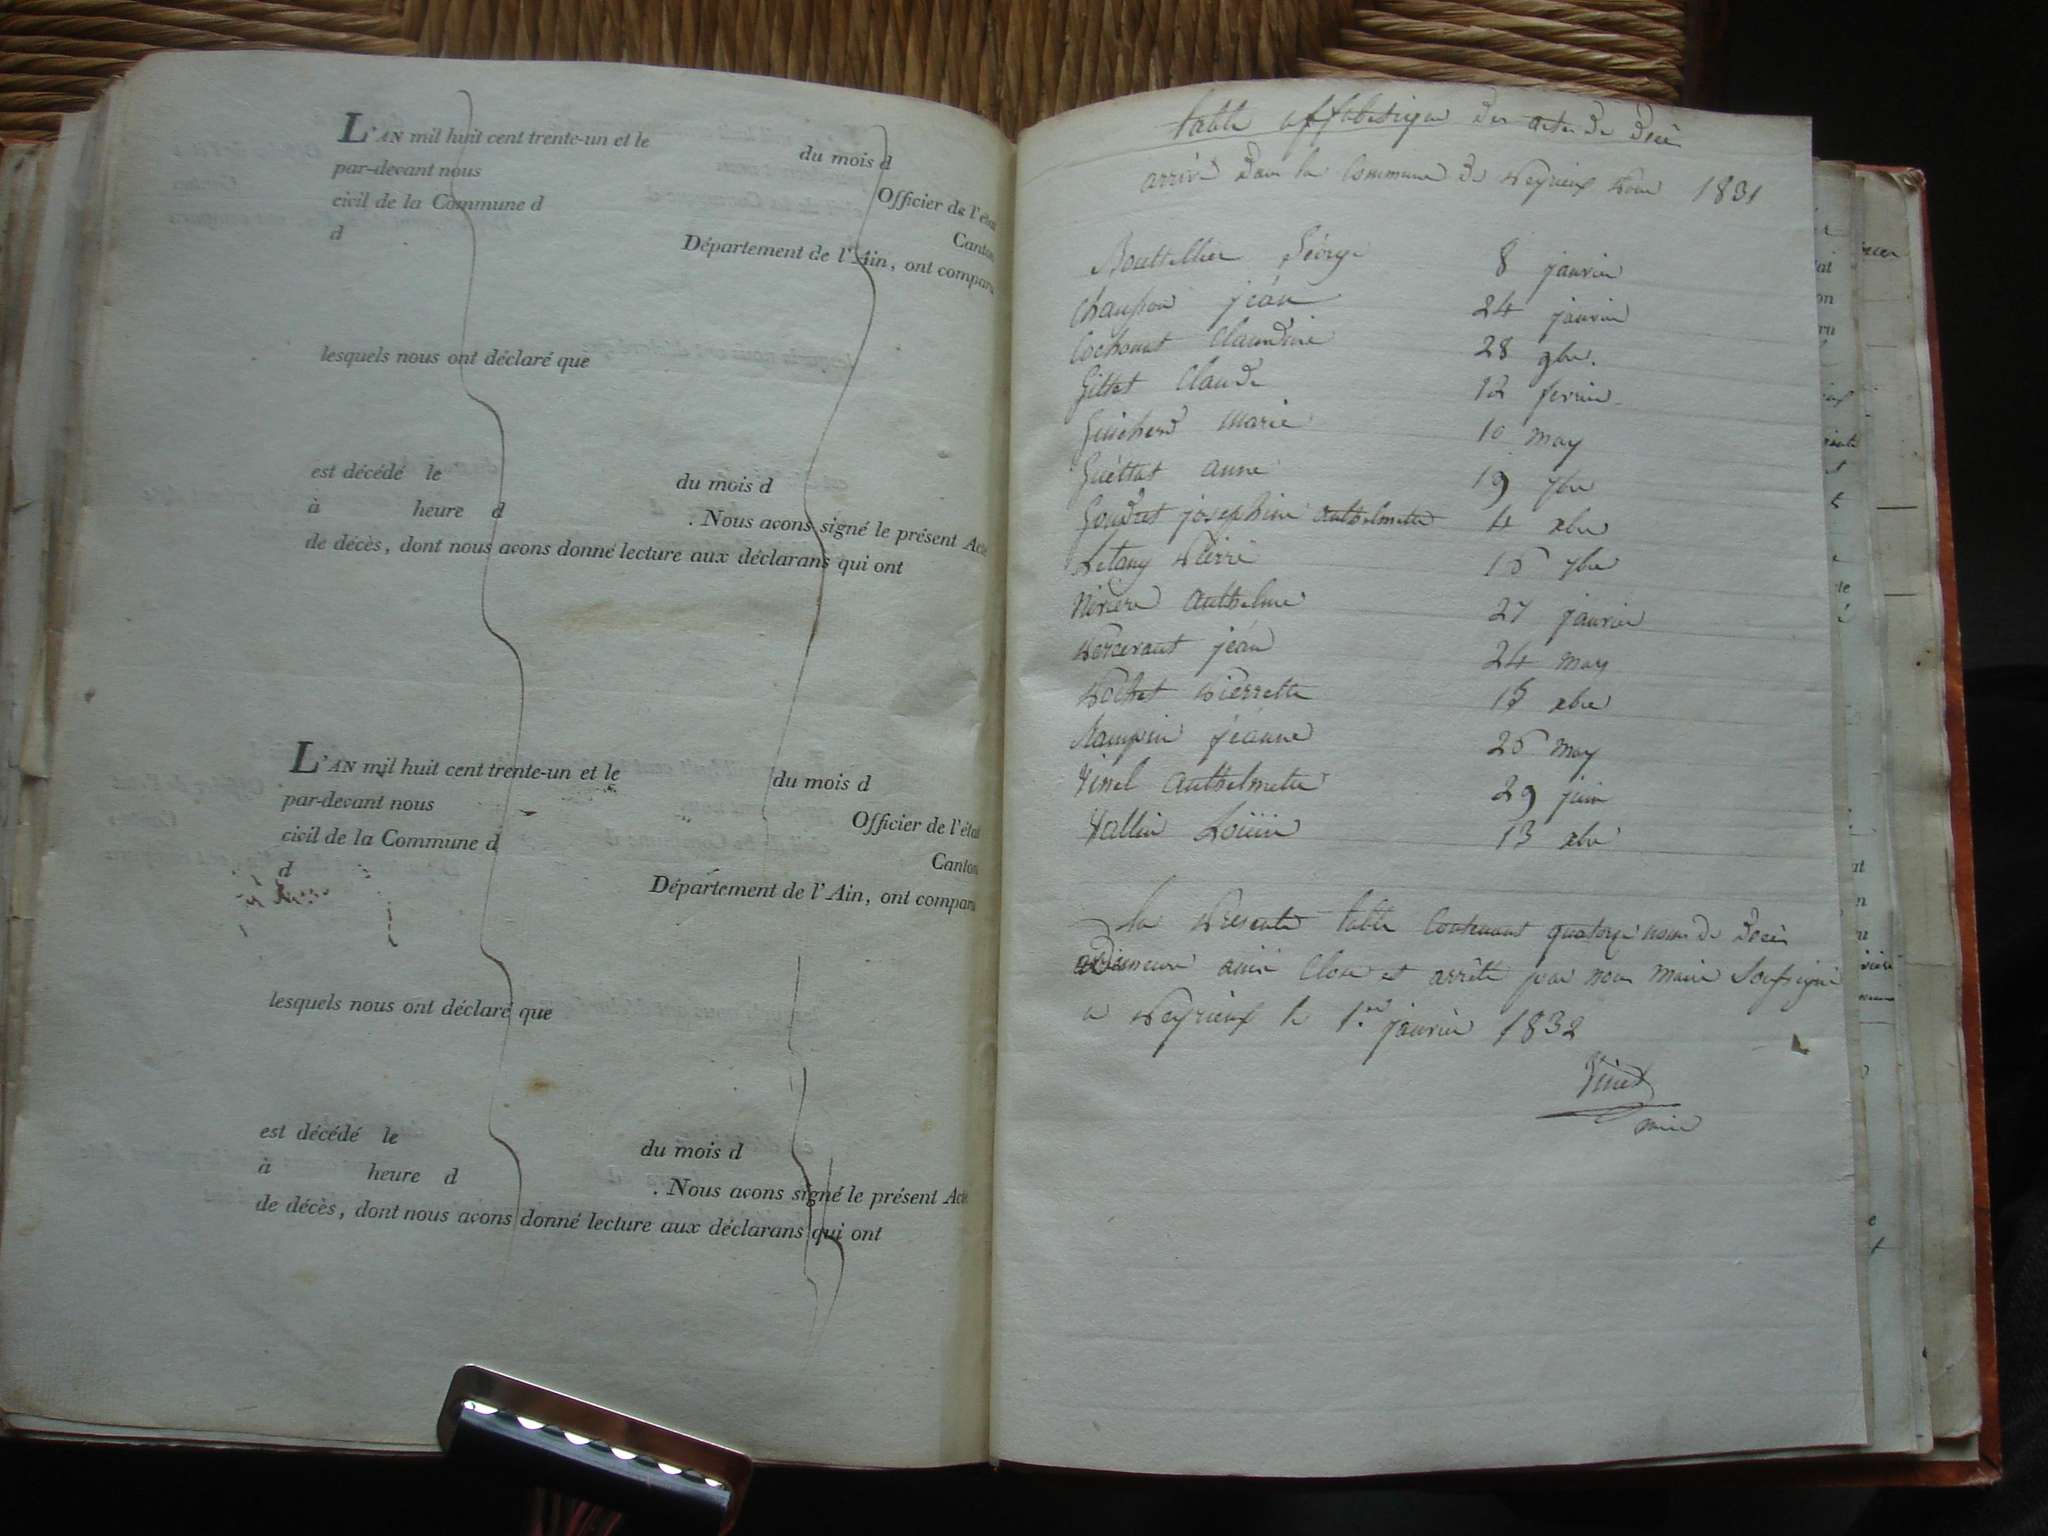 L'AN mil huit cent trente-un et le du mois d
par-devant nous Officier de l'état
civil de la Commune d Canton
d Département de l'Ain, ont comparu
lesquels nous ont déclaré que
est décédé le du mois d
à heure d . Nous avons signé le présent Acte
de décès, dont nous avons donné lecture aux déclarans qui ont
L'AN mil huit cent trente-un et le du mois d
par-devant nous Officier de l'état
civil de la Commune d Canton
d Département de l'Ain, ont comparu
lesquels nous ont déclaré que
est décédé le du mois d
à heure d . Nous avons signé le présent Acte
de décès, dont nous avons donné lecture aux déclarans qui ont
table des actes de décè
arrivé dans la Commune de Peyrieux 1831
George 8 janvier
jéan 24 janvier
Cochonat Claudine 28 9bre.
Gillet Claude 12 fevrier
Guicherd marie 10 may
Guéttat anne 19 7bre
Goudret josephine anthelmette 4 xbre
Pierre 16 7bre
anthelme 27 janvier
Percevaut jéan 24 may
Pochet Pierrette 18 xbre
Rampin jéanne 26 may
Vinel anthelmette 29 juin
Vallin Loüise 13 xbre
la Présente table Contenant quatorze noms de Décès
ainsi Close et arrêté par nous maire Soussigné
a Peyrieux le 1.er janvier 1832
Vinet